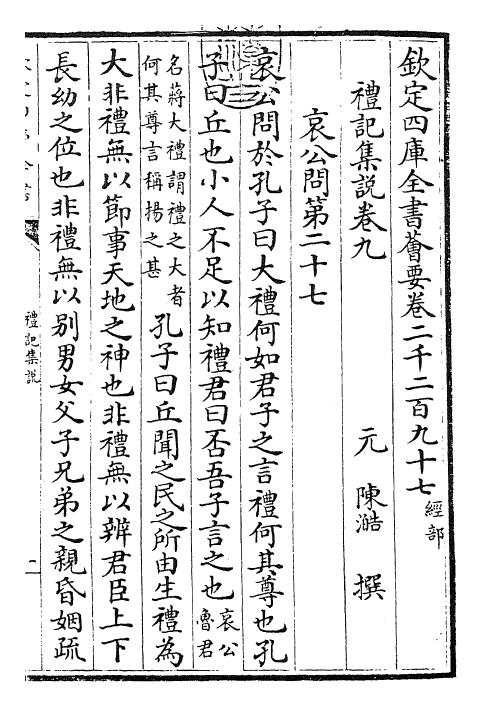 欽定四庫全書薈要卷二千二百九十七經部
禮記集說卷九
元 陳澔 撰
哀公問第二十七
哀公問於孔子曰大禮何如君子之言禮何其尊也孔
子曰丘也小人不足以知禮君曰否吾子言之也哀公
魯君
名蔣大禮謂禮之大者
何其尊言稱揚之甚
孔子曰丘聞之民之所由生禮為
大非禮無以節事天地之神也非禮無以辨君臣上下
長幼之位也非禮無以別男女父子兄弟之親昏姻疏
禮記集說